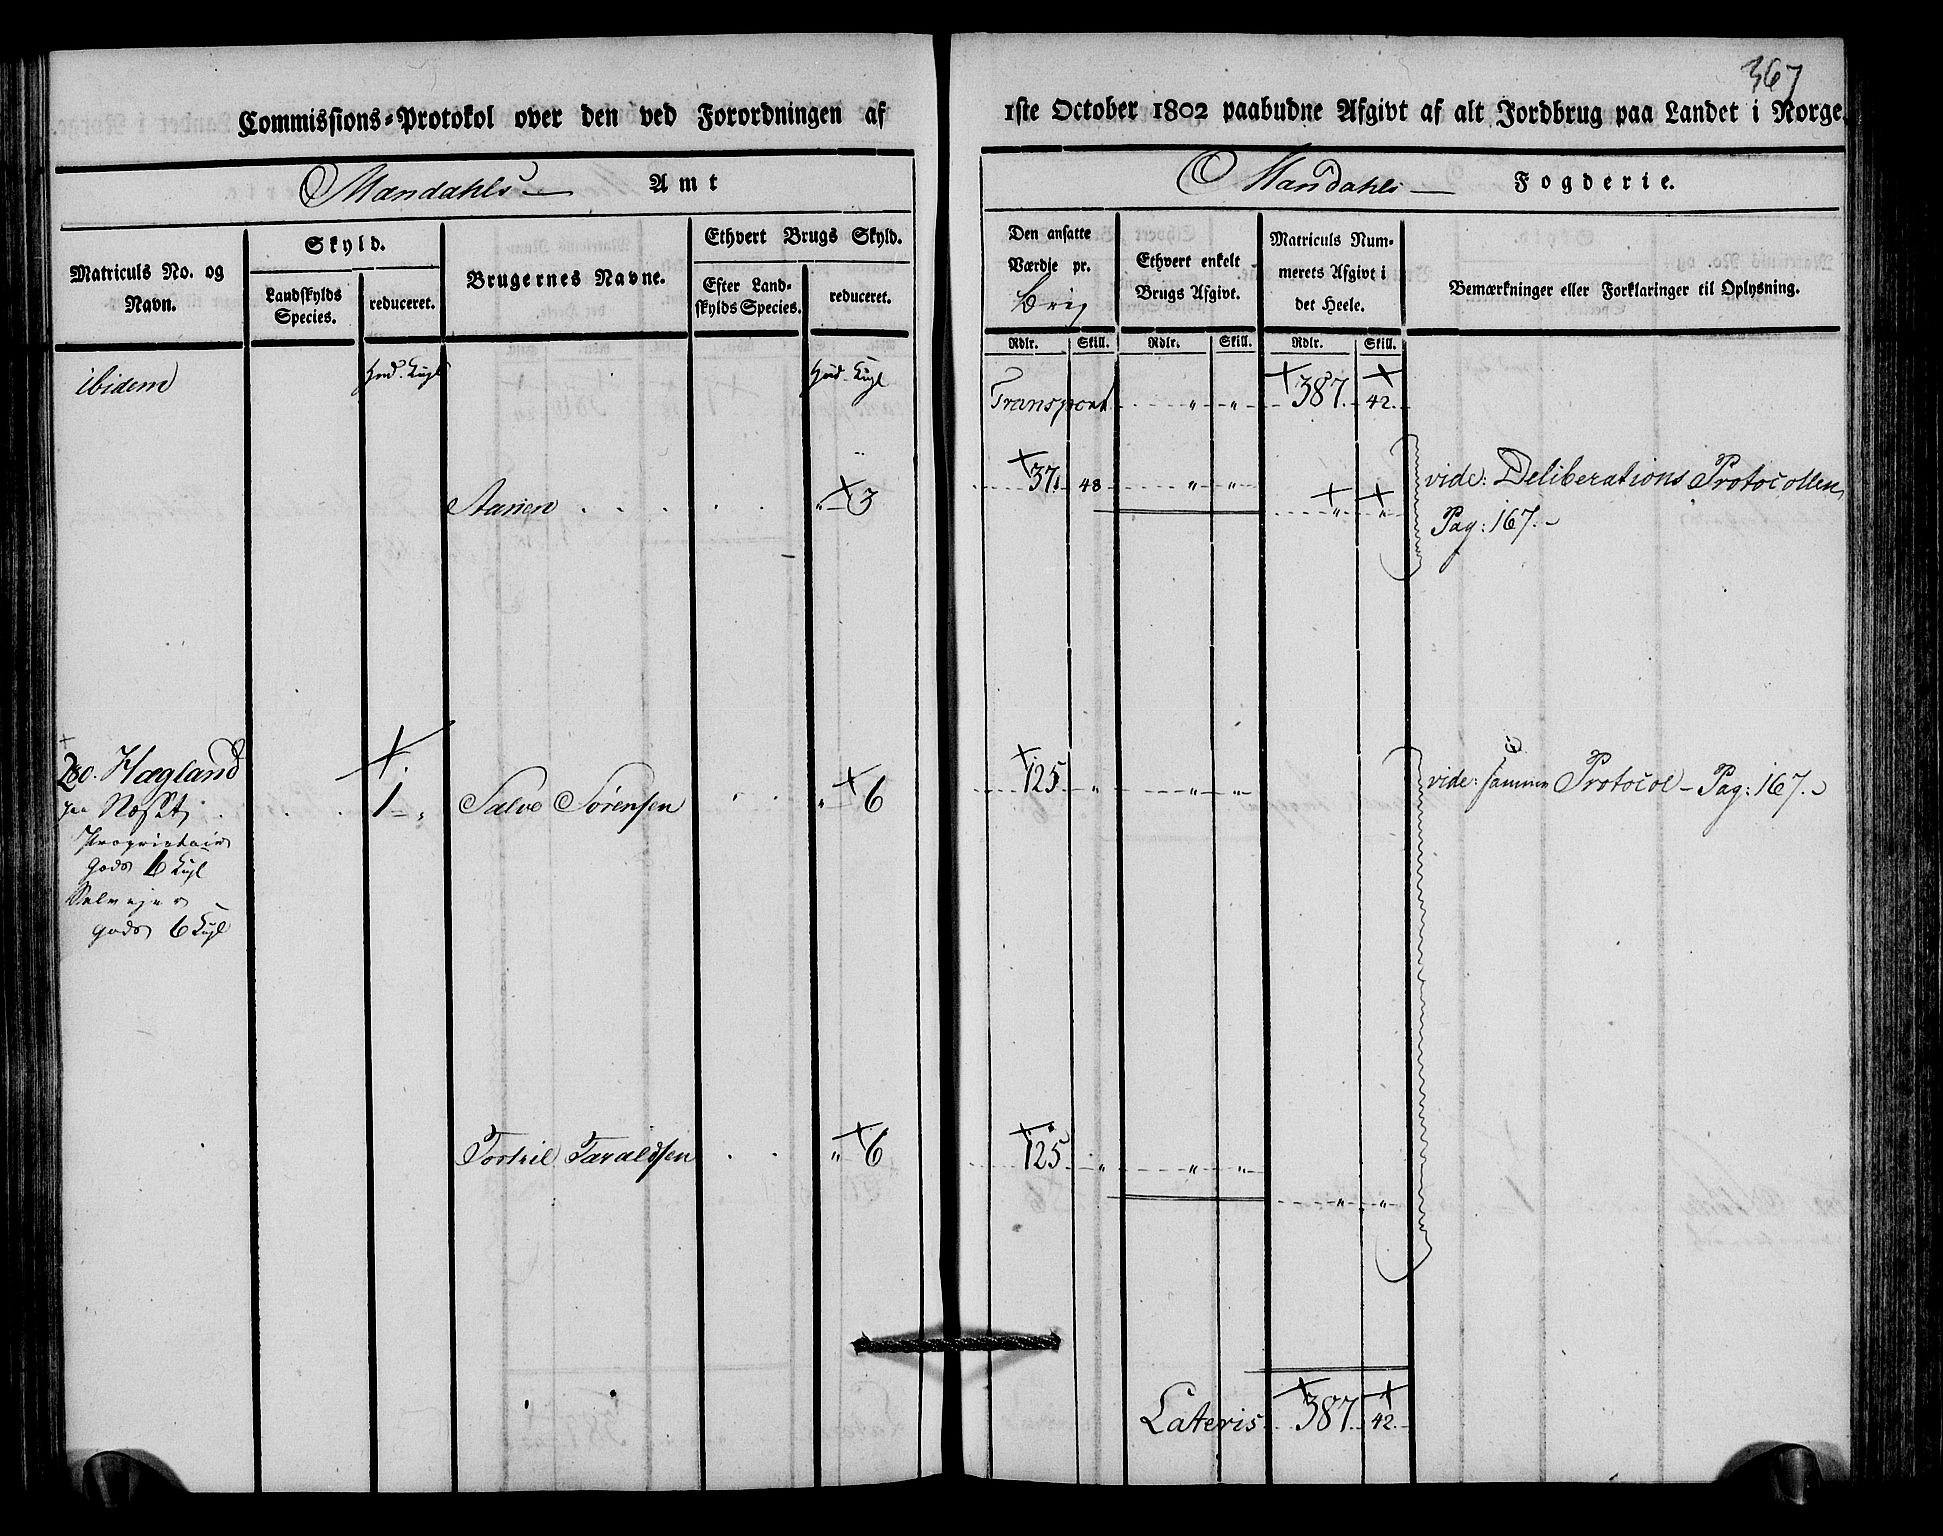 367
Commissions-Protokol over den ved Forordningen af 1ste October 1802 paabudne Afgivt af alt Jordbrug paa Landet i Norge.
Mandahls Amt
Mandahls Fogderie.
Matriculs No. og Navn.
Skyld.
Landskylds Species.
reduceret.
Brugernes Navne.
Ethvert Brugs Skyld.
Efter Landskylds Species.
reduceret.
Den ansatte Værdie pr.
Ethvert enkelt Brugs Afgivt.
Matriculs Nummerets Afgivt i det Heele.
Bemærkninger eller Forklaringer til Oplysning.
Rdlr. Skill. Rdlr. Skill. Rdlr. Skill.
ibidem Hud. Kugl Hud. Kugl Transport " " 387. 42.
Aanen " 3 37. 48 " " " " vide: Deliberations Protocollen
Pag: 167.
280. Hægland 1 " Salve Sörensen " 6 125 " " " vide: samme Protocol - Pag: 167.
Proprietair
gods 6 Kugl
Selvejer
gods 6 Kugl
Taraldsen " 6 125 " " "
" "
Lateris 387. 42.